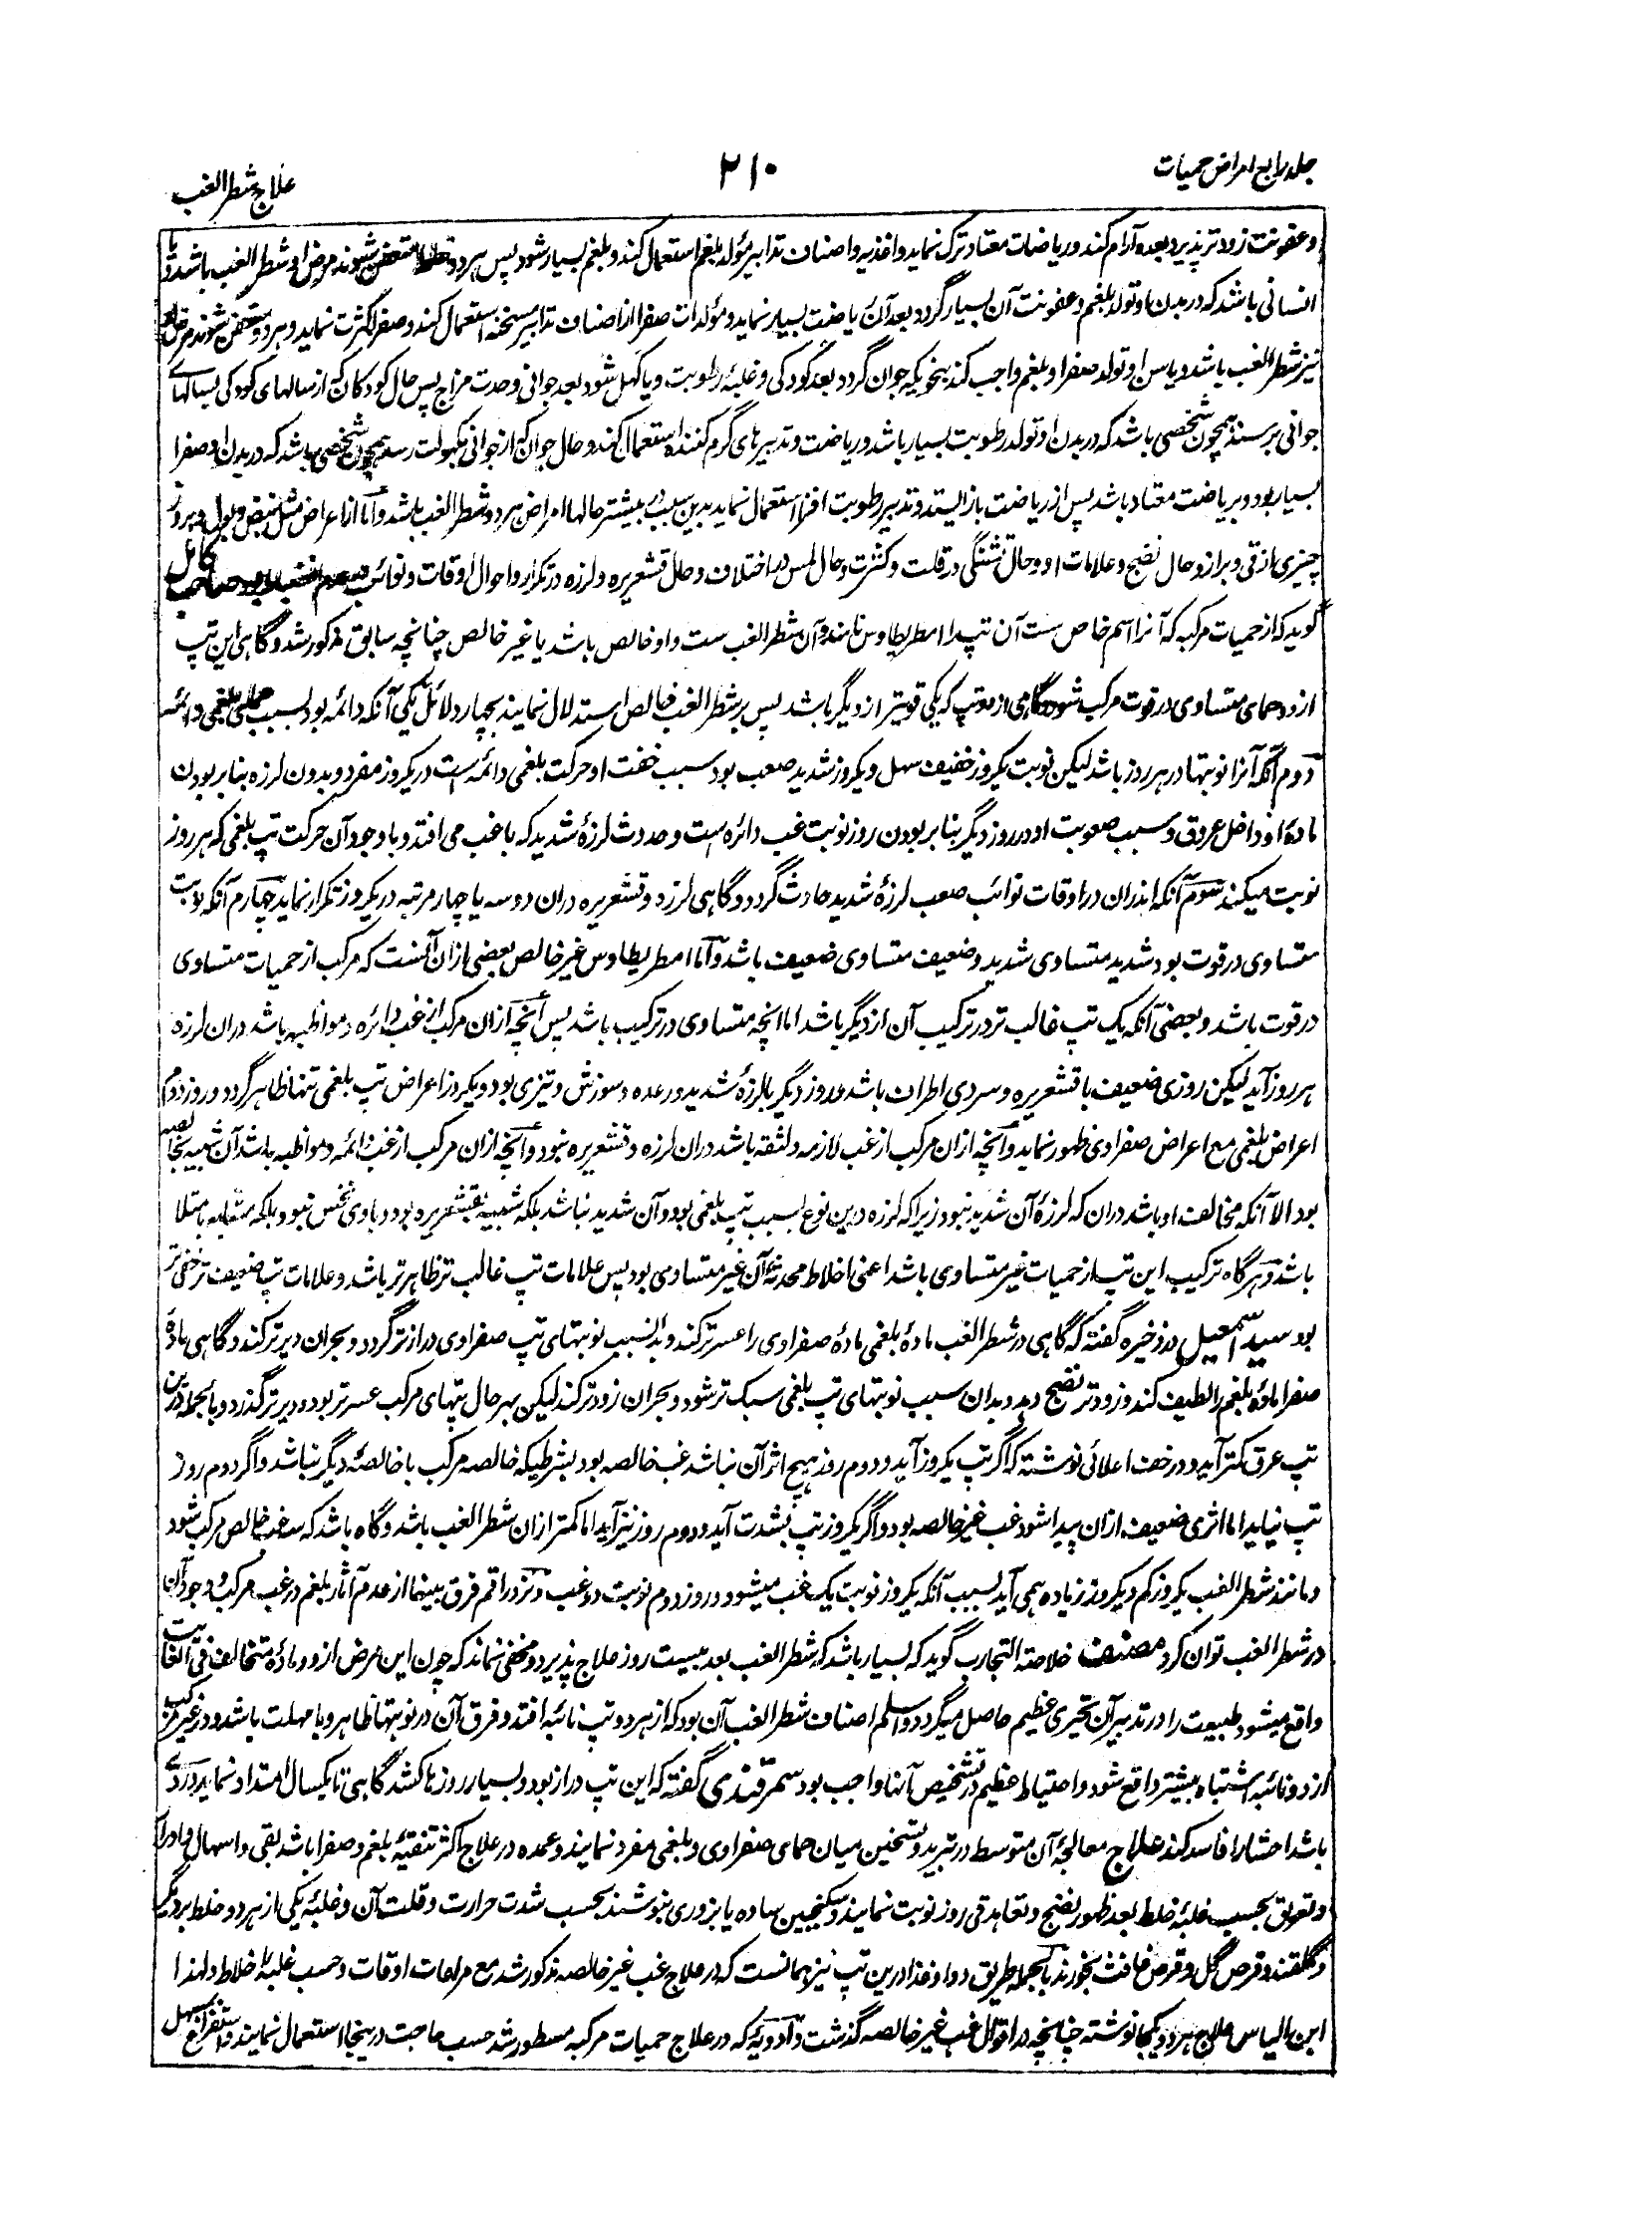 جلد رابع امراض حمیات
۲۱۰
علاج شطر الغب
و عفونت زودتر پذیرد بعده آرام کند و ریاضات معتاد ترک نماید و اغذیه و اصناف تدابیر مؤلد بلغم استعمال کند و بلغم بسیار شود پس هر دو متعفن شوند مرض او شطر الغب باشد و یا
انسانی باشد که در بدن او تولد بلغم و عفونت آن بسیار گردد بعد آن ریاضت بسیار نماید و مؤلدات صفرا از اصناف تدابیر مسخنه استعمال کند و صفرا کثرت نماید و هر دو متعفن شوند مرض او
نیز شطر الغب باشد و یا سن او تولد صفرا و بلغم واجب کند بنحویکه جوان گردد بعد کودکی و غلبهٔ رطوبت و یا کهل شود بعد جوانی و حدت مزاج پس حال کودکان که از سالهای کودکی بسالهای
جوانی برسند همچون شخصی باشد که در بدن او تولد رطوبت بسیار باشد و ریاضت و تدبیرهای گرم کننده استعمال کند و حال جوان که از جوانی بکهولت رسد همچون شخصی باشد که در بدن او صفرا
بسیار بود و بریاضت معتاد باشد پس از ریاضت باز ایستد و تدبیر رطوبت افزا استعمال نماید بدین سبب در بیشتر حالها امراض هر دو شطر الغب باشد و اما از اعراض مثل نبض و بول و بروز
چیزی از قی و براز و حال نضج و علامات او و حال تشنگی در قلت و کثرت و حال لمس در اختلاف و حال قشعریره و لرزه در تکرار و احوال اوقات و نوائب صاحب کامل
گوید که از حمیات مرکبه که آنرا اسم خاص ست آن تپ را امطریطاوس نامند و آن شطر الغب ست و او خالص باشد یا غیر خالص چنانچه سابق مذکور شد و گاهی این تپ
از دو حمای متساوی در قوت مرکب شود و گاهی از دو تپ که یکی قویتر از دیگر باشد پس بر شطر الغب خالص استدلال نمایند بچهار دلائل یکی آنکه دائمه بود بسبب حمای بلغمی دائمه
دوم آنکه آنرا نوبتها در هر روز باشد لیکن نوبت یکروز خفیف سهل و یکروز شدید صعب بود سبب خفت او حرکت بلغمی دائمه است در یکروز مفرد و بدون لرزه بنا بر بودن
مادهٔ او داخل عروق و سبب صعوبت او در روز دیگر بنا بر بودن روز نوبت غب دائره است و حدوث لرزهٔ شدید که با غب می افتد و با وجود آن حرکت تپ بلغمی که هر روز
نوبت میکند سوم آنکه اندران در اوقات نوائب صعب لرزهٔ شدید حادث گردد و گاهی لرزه و قشعریره دران دو سه یا چهار مرتبه در یکروز تکرار نماید چهارم آنکه نوبت
متساوی در قوت بود شدید متساوی شدید و ضعیف متساوی ضعیف باشد و اما امطریطاوس غیر خالص بعضی ازان آنست که مرکب از حمیات متساوی
در قوت باشد و بعضی آنکه یک تپ غالب تر در ترکیب آن از دیگر باشد اما انچه متساوی در ترکیب باشد پس آنچه ازان مرکب از غب دائره و مواظبه باشد دران لرزه
هر روز آید لیکن روزی ضعیف با قشعریره و سردی اطراف باشد و روز دیگر با لرزهٔ شدید و رعده و سوزش و تیزی بود و یکروز اعراض تپ بلغمی تنها ظاهر گردد و روز دوم
اعراض بلغمی مع اعراض صفراوی ظهور نماید و آنچه ازان مرکب از غب لازمه و لثقه باشد دران لرزه و قشعریره نبود و آنچه ازان مرکب از غب دائمه و مواظبه باشد آن شبیه بخالصه
بود الا آنکه مخالف او باشد دران که لرزهٔ آن شدید نبود زیرا که لرزه درین نوع بسبب تپ بلغمی بود و آن شدید نباشد بلکه شبیه بقشعریره بود و با وی نخس نبود بلکه مشابه بامتلا
باشد و هرگاه ترکیب این تپ از حمیات غیر متساوی باشد اعنی اخلاط محدثهٔ آن غیر متساوی بود پس علامات تپ غالب تر ظاهر تر باشد و علامات تپ ضعیف تر خفی تر
بود سید اسمعیل در ذخیره گفته که گاهی در شطر الغب مادهٔ بلغمی مادهٔ صفراوی را عسرتر کند و بدانسبب نوبتهای تپ صفراوی درازتر گردد و بحران دیرتر کند و گاهی مادهٔ
صفرا مادهٔ بلغم را لطیف کند و زودتر نضج دهد و بدان سبب نوبتهای تپ بلغمی سبک تر شود و بحران زودتر کند لیکن بهر حال تپهای مرکب عسرتر بود و دیرتر گذرد و بالجمله درین
تپ عرق کمتر آید و در خف اعلائی نوشته که اگر تپ یکروز آید و دوم روز هیچ اثر آن نباشد غب خالصه بود بشرطیکه خالصه مرکب با خالصهٔ دیگر نباشد و اگر دوم روز
تپ نیاید اما اثری ضعیف ازان پیدا شود غب غیر خالصه بود و اگر یکروز تپ بشدت آید و دوم روز نیز آید اما کمتر ازان شطر الغب باشد و گاه باشد که سه غب خالص مرکب شود
و مانند شطر الغب یکروز کم و یکروز زیاده همی آید بسبب آنکه یکروز نوبت یک غب میشود و در روز دوم نوبت دو غب و نزد راقم فرق بینهما از عدم آثار بلغم در غب مرکب و وجود آن
در شطر الغب توان کرد مصنف خلاصة التجارب گوید که بسیار باشد که شطر الغب بعد بیست روز علاج پذیرد و مخفی نماند که چون این مرض از دو مادهٔ متخالف فی الغایت
واقع میشود طبیعت را در تدبیر آن تحیری عظیم حاصل میگردد و اسلم اصناف شطر الغب آن بود که از هر دو تپ نائبه افتد و فرق آن در نوبتها ظاهر و با مهلت باشد و در غیر مرکب
از دو نائبه اشتباه بیشتر واقع شود و احتیاط عظیم در تشخیص آنها واجب بود سمرقندی گفته که این تپ دراز بود و بسیار روزها کشد گاهی تا یکسال امتداد نماید و ردی
باشد احشا را فاسد کند علاج معالجهٔ آن متوسط در تبرید و تسخین میان حمای صفراوی و بلغمی مفرد نمایند و عمده در علاج اکثر تنقیهٔ بلغم و صفرا باشد بقی و اسهال و ادرار
و تعریق بحسب غلبهٔ خلط بعد ظهور نضج و تعاهد قی روز نوبت نمایند و سکنجبین ساده یا بزوری بنوشند بحسب شدت حرارت و قلت آن و غلبهٔ یکی از هر دو خلط بر دیگر
و گلقند و قرص گل و قرص غافث بخورند بالجمله طریق دوا و غذا درین تپ نیز همانست که در علاج غب غیر خالصه مذکور شد مع مراعات اوقات و حسب غلبهٔ اخلاط و لهذا
ابن الیاس علاج هر دو یکجا نوشته چنانچه در اقوال غب غیر خالصه گذشت و ادویهٔ که در علاج حمیات مرکبه مسطور شد حسب حاجت درینجا استعمال نمایند و استفراغ بمسهل